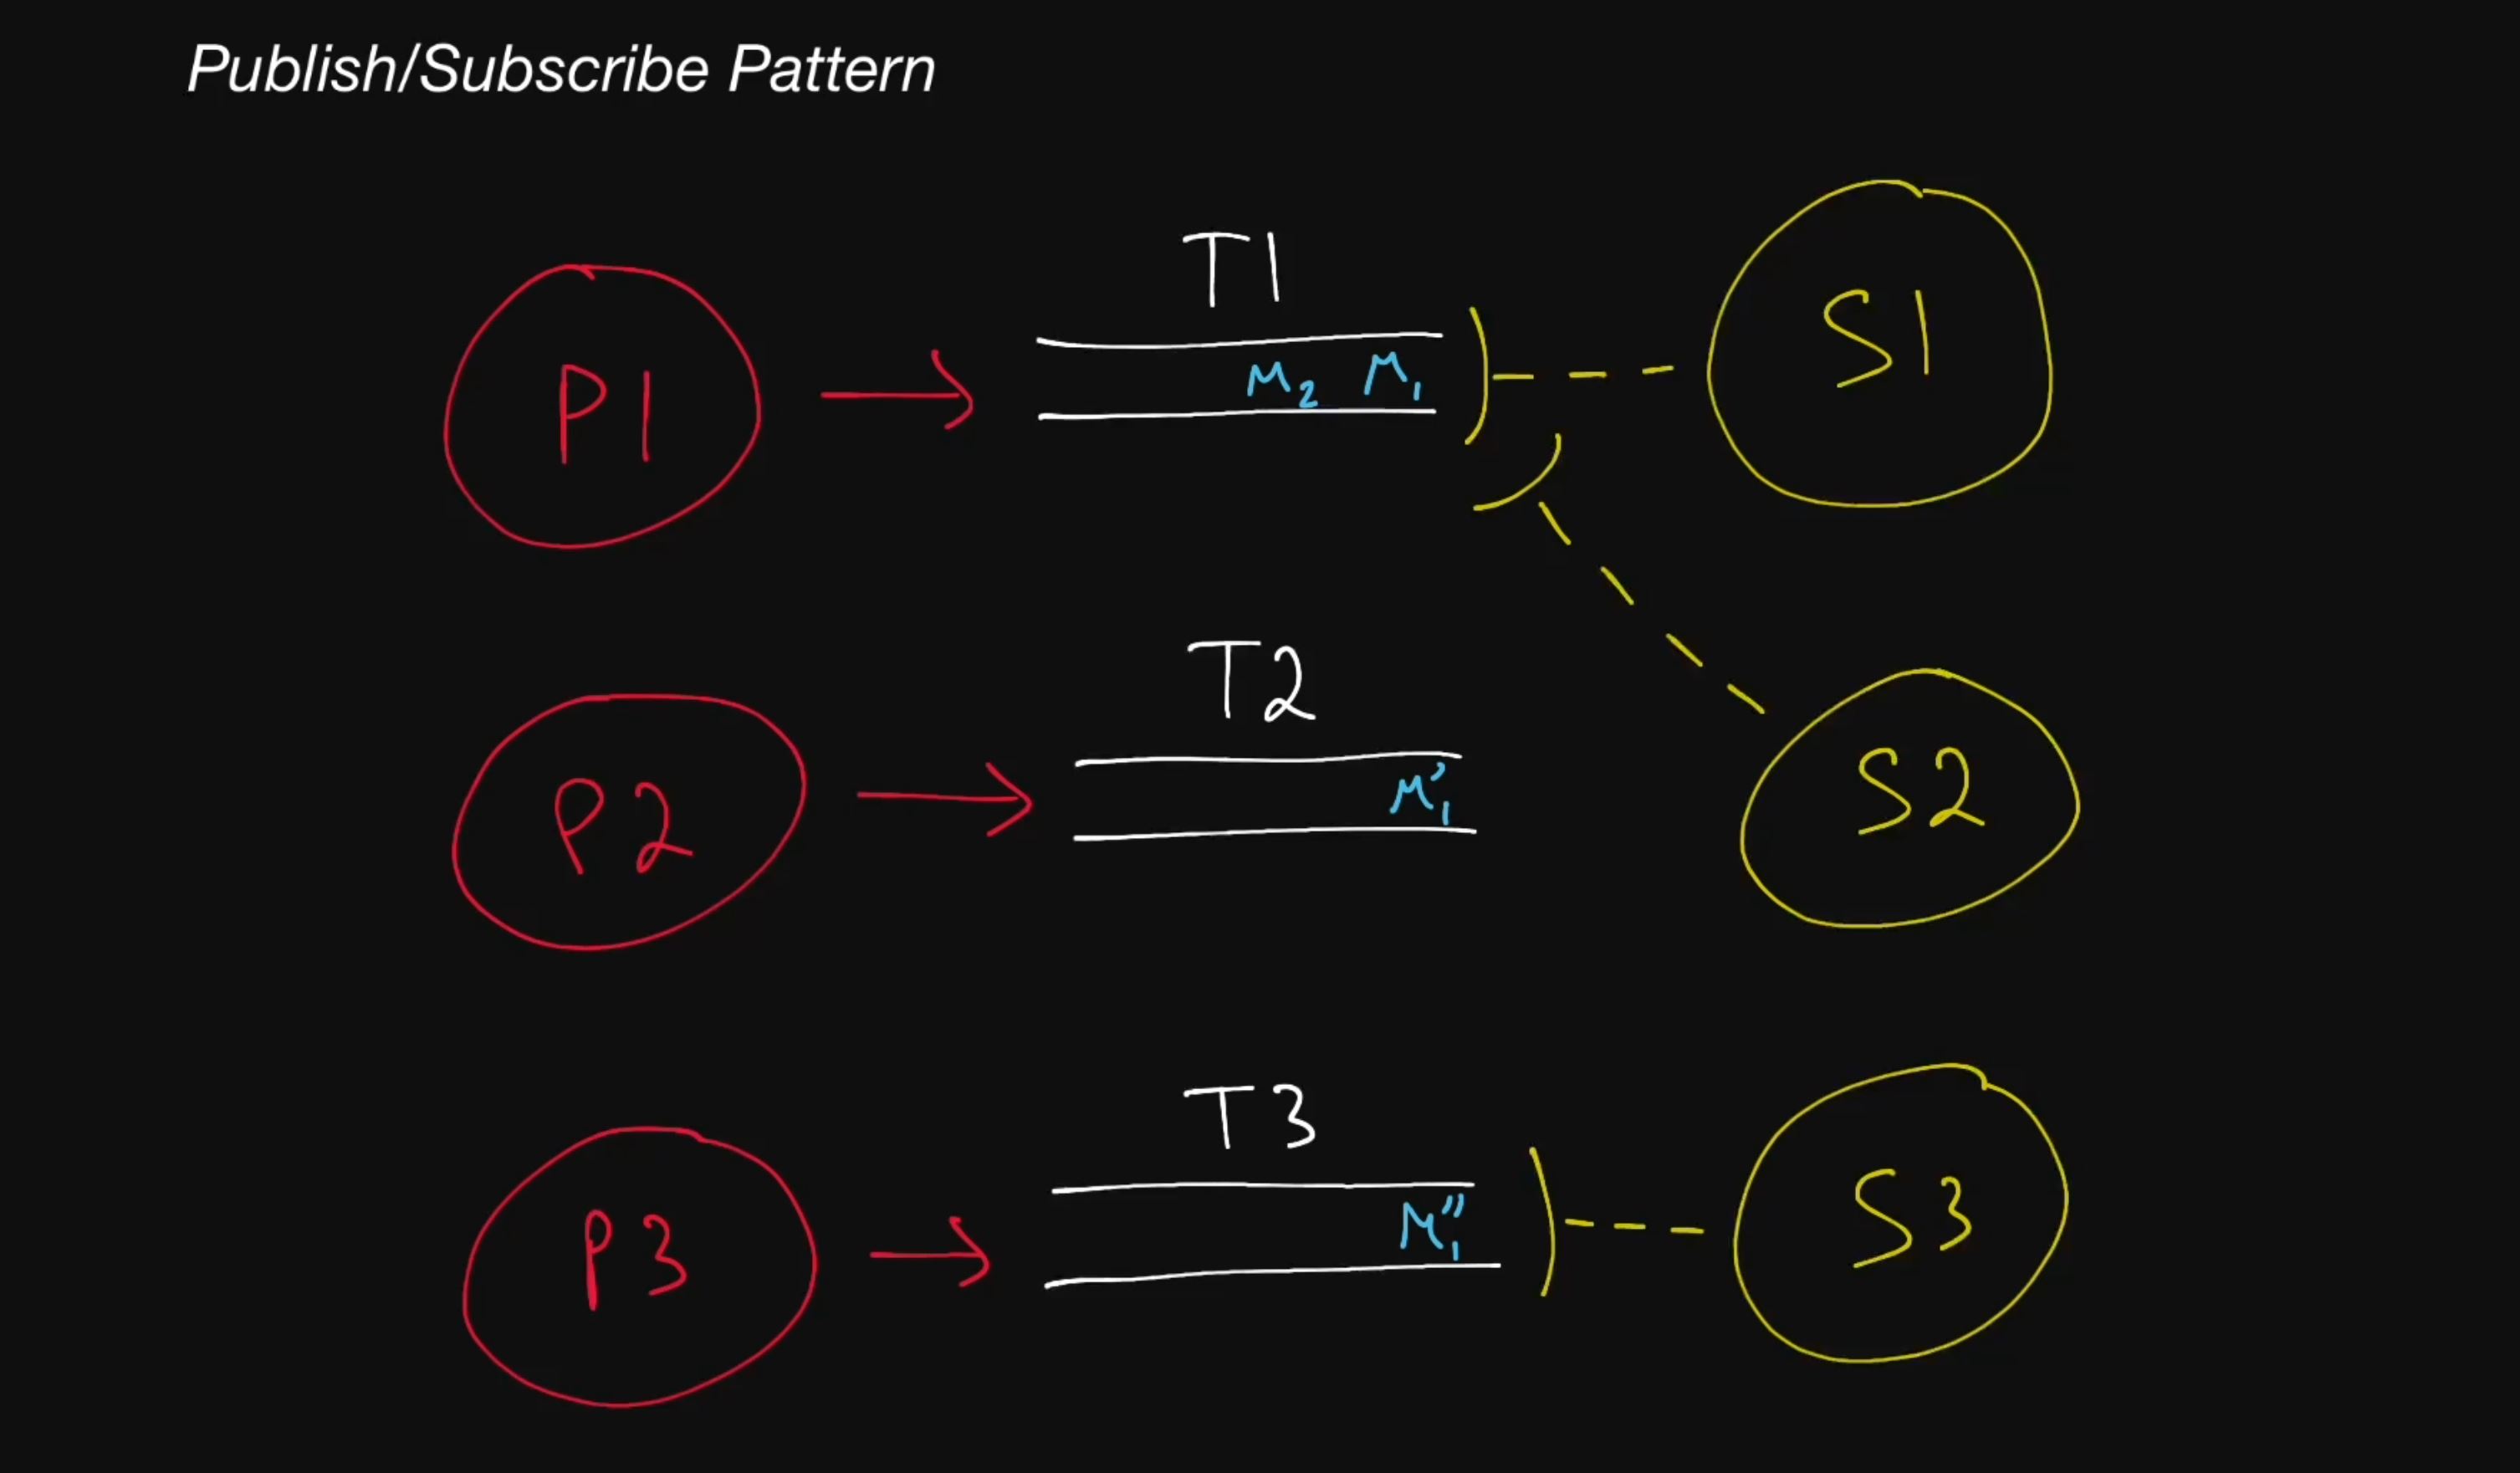 Publish/Subscribe Pattern
T1
P1
M₂ M₁
S1
T2
P2
M'₁
S2
T3
P3
M''₁
S3